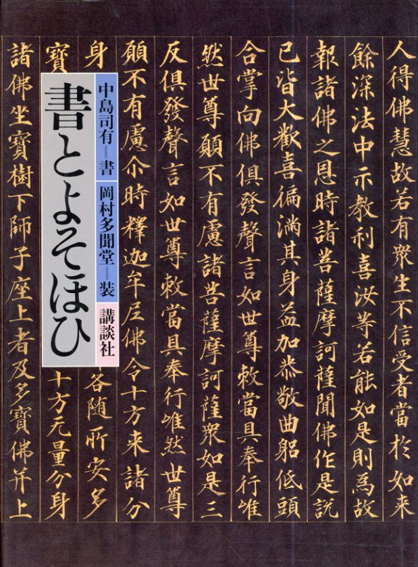 人得佛慧故若有衆生不信受者當於如来
餘深法中示教利喜汝等若能如是則爲故
報諸佛之恩時諸菩薩摩訶薩聞佛作是説
已皆大歡喜徧満其身益加恭敬曲躬低頭
合掌向佛俱發聲言如世尊敕當具奉行唯
然世尊願不有慮諸菩薩摩訶薩衆如是三
反俱發聲言如世尊敕當具奉行唯然世尊
願不有慮尒時釋迦牟尼佛令十方来諸分
身
各随所安多
中島司有―書 岡村多聞堂―装 講談社
書とよそほひ
寶
十方无量分身
諸佛坐寶樹下師子座上者及多寶佛并上